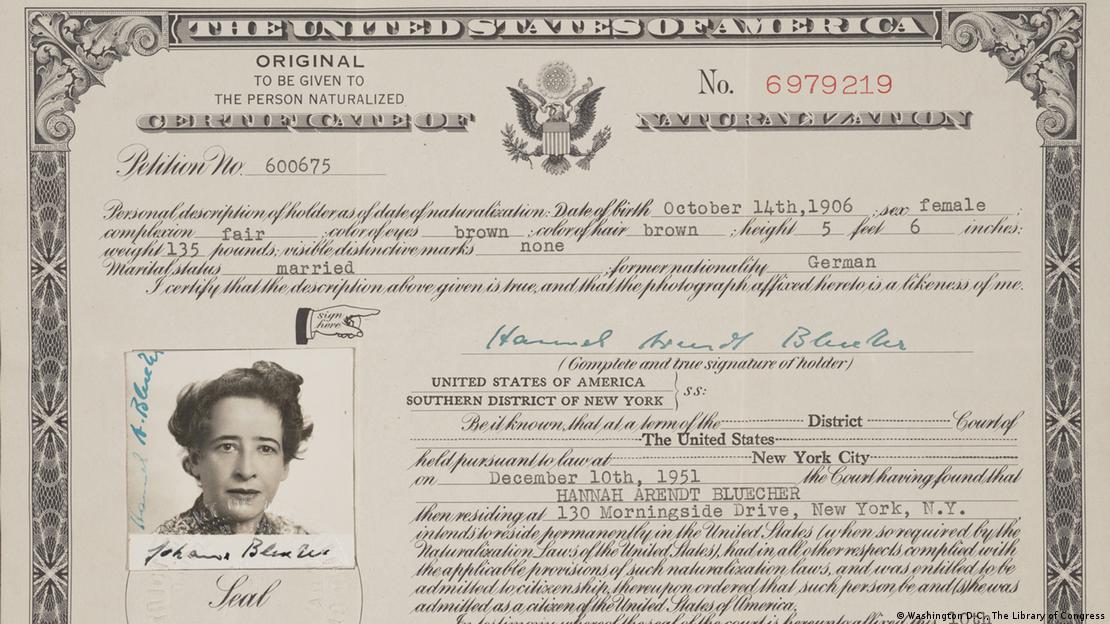 THE UNITED STATES OF AMERICA
ORIGINAL
TO BE GIVEN TO
THE PERSON NATURALIZED
No. 6979219
CERTIFICATE OF NATURALIZATION
Petition No. 600675
Personal description of holder as of date of naturalization: Date of birth October 14th, 1906 ; sex female ;
complexion fair ; color of eyes brown ; color of hair brown ; height 5 feet 6 inches;
weight 135 pounds; visible distinctive marks none
Marital status married ; former nationality German
I certify that the description above given is true, and that the photograph affixed hereto is a likeness of me.
sign
here
Hannah Arendt Bluecher
(Complete and true signature of holder)
Hannah A. Bluecher
UNITED STATES OF AMERICA
SOUTHERN DISTRICT OF NEW YORK
ss:
Be it known, that at a term of the District Court of
The United States
held pursuant to law at New York City
on December 10th, 1951 the Court having found that
HANNAH ARENDT BLUECHER
then residing at 130 Morningside Drive, New York, N.Y.
intends to reside permanently in the United States (when so required by the
Naturalization Laws of the United States), had in all other respects complied with
the applicable provisions of such naturalization laws, and was entitled to be
admitted to citizenship, thereupon ordered that such person be and (s)he was
admitted as a citizen of the United States of America.
Bluecher
Seal
In testimony whereof the seal of the court is hereunto affixed this
© Washington D.C., The Library of Congress